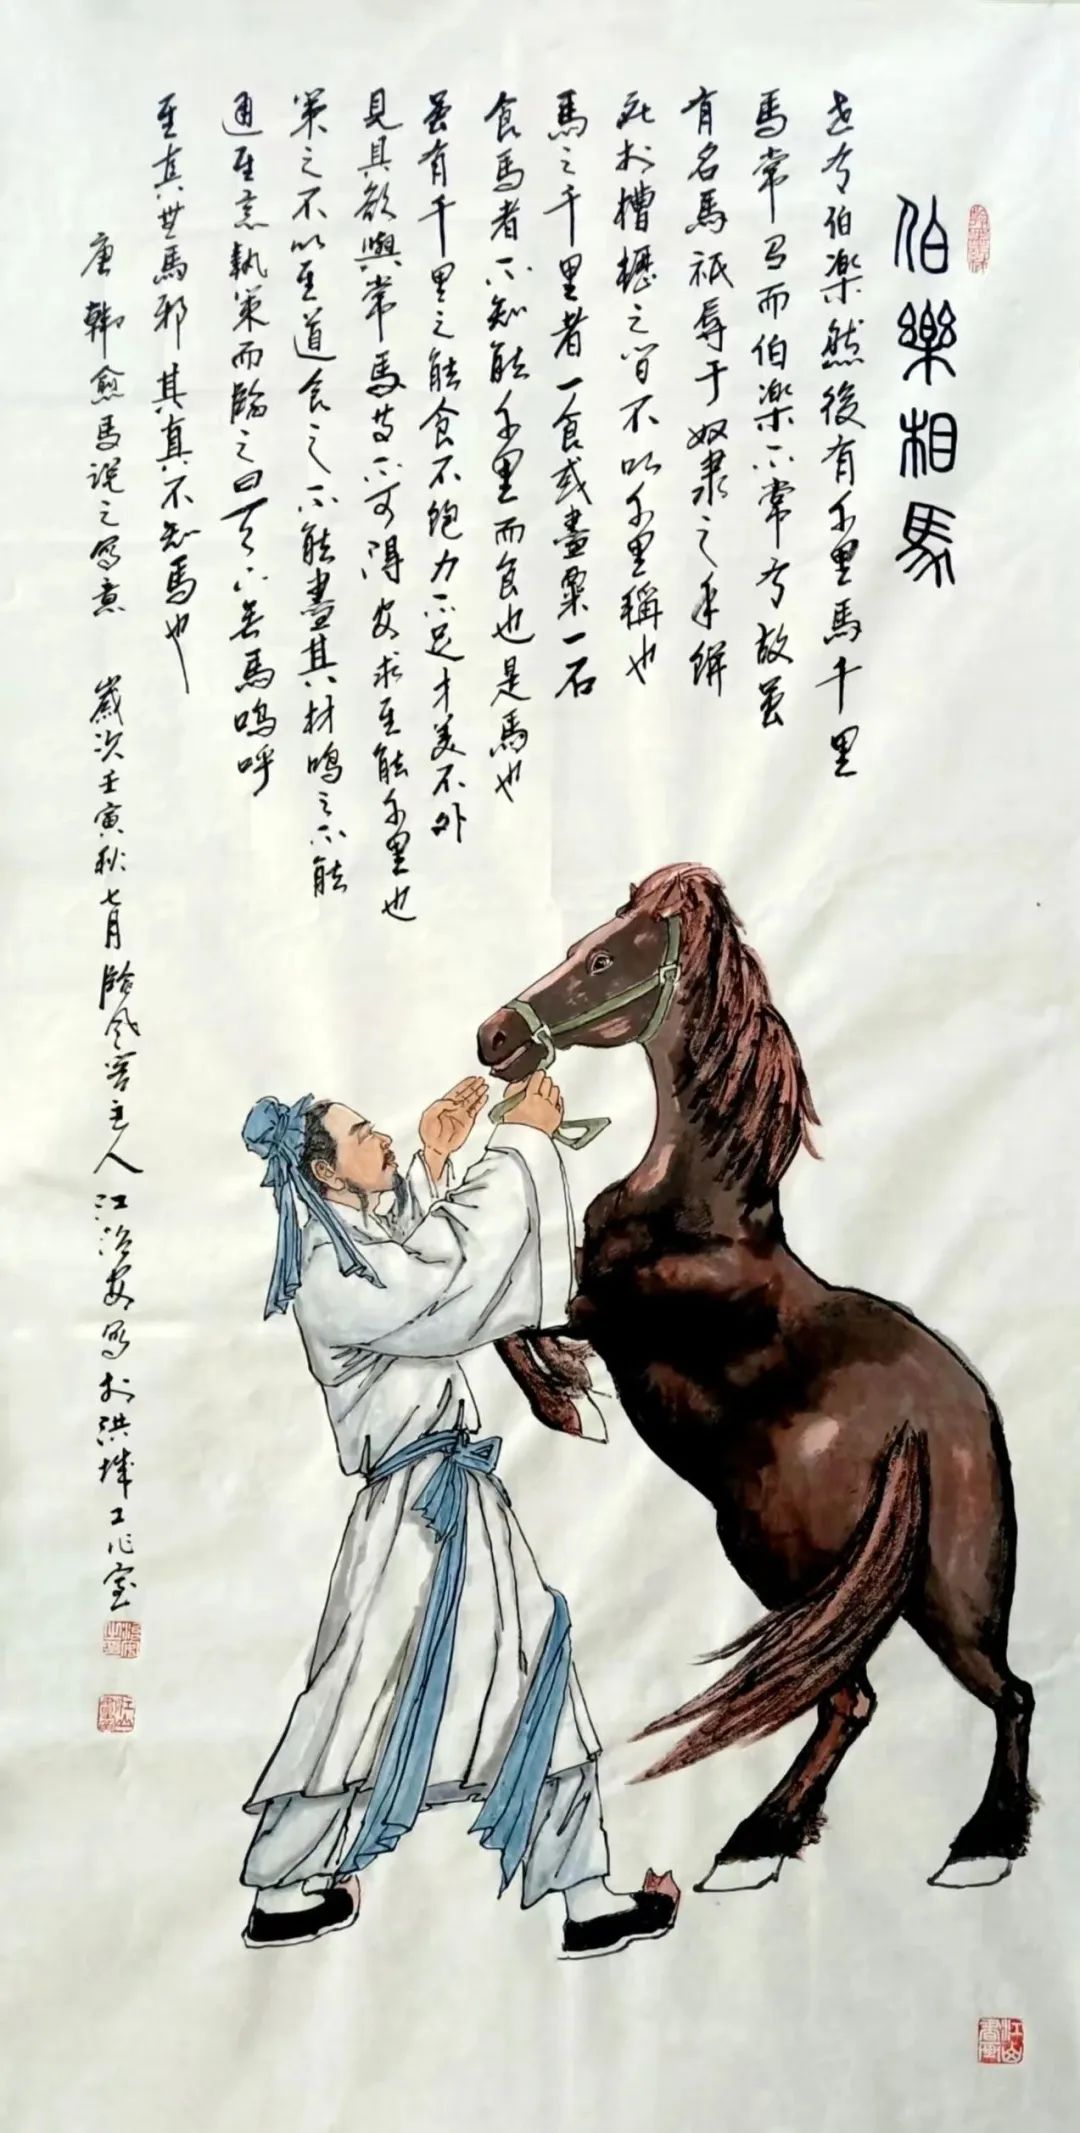 伯樂相馬
世有伯樂然後有千里馬千里
馬常有而伯樂不常有故虽
有名馬祇辱于奴隶之手駢
死於槽櫪之間不以千里稱也
馬之千里者一食或盡粟一石
食馬者不知能千里而食也是馬也
虽有千里之能食不飽力不足才美不外
見且欲與常馬等不可得安求其能千里也
策之不以其道食之不能盡其材鳴之不能
通其意執策而臨之曰天下無馬嗚呼
其真無馬邪其真不知馬也
唐韓愈馬說之寫意 歲次壬寅秋七月臨風主人江治安寫於洪城工作室